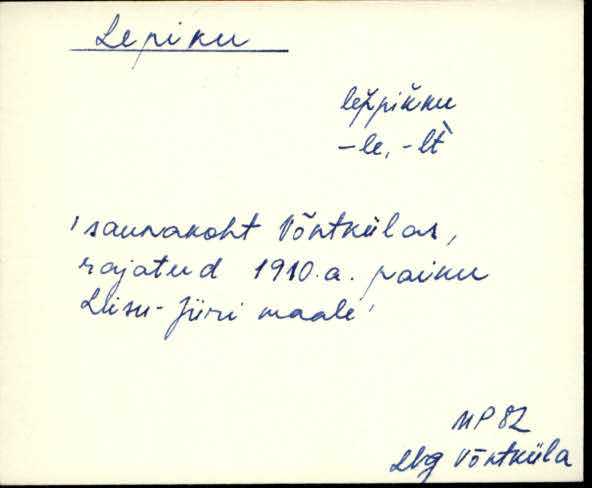 Lepiku
lep̆pik̆ku
-le, -lt̀
'saunakoht Võntkülas,
rajatud 1910.a. paiku
Liisu-Jüri maale'
MP 82
Lbg Võntküla